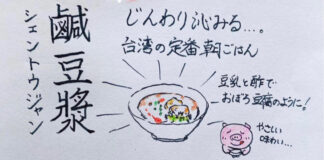 鹹豆漿
シェントウジャン
じんわり沁みる…。
台湾の定番朝ごはん
豆乳と酢で
おぼろ豆腐のように!
やさしい
味わい…